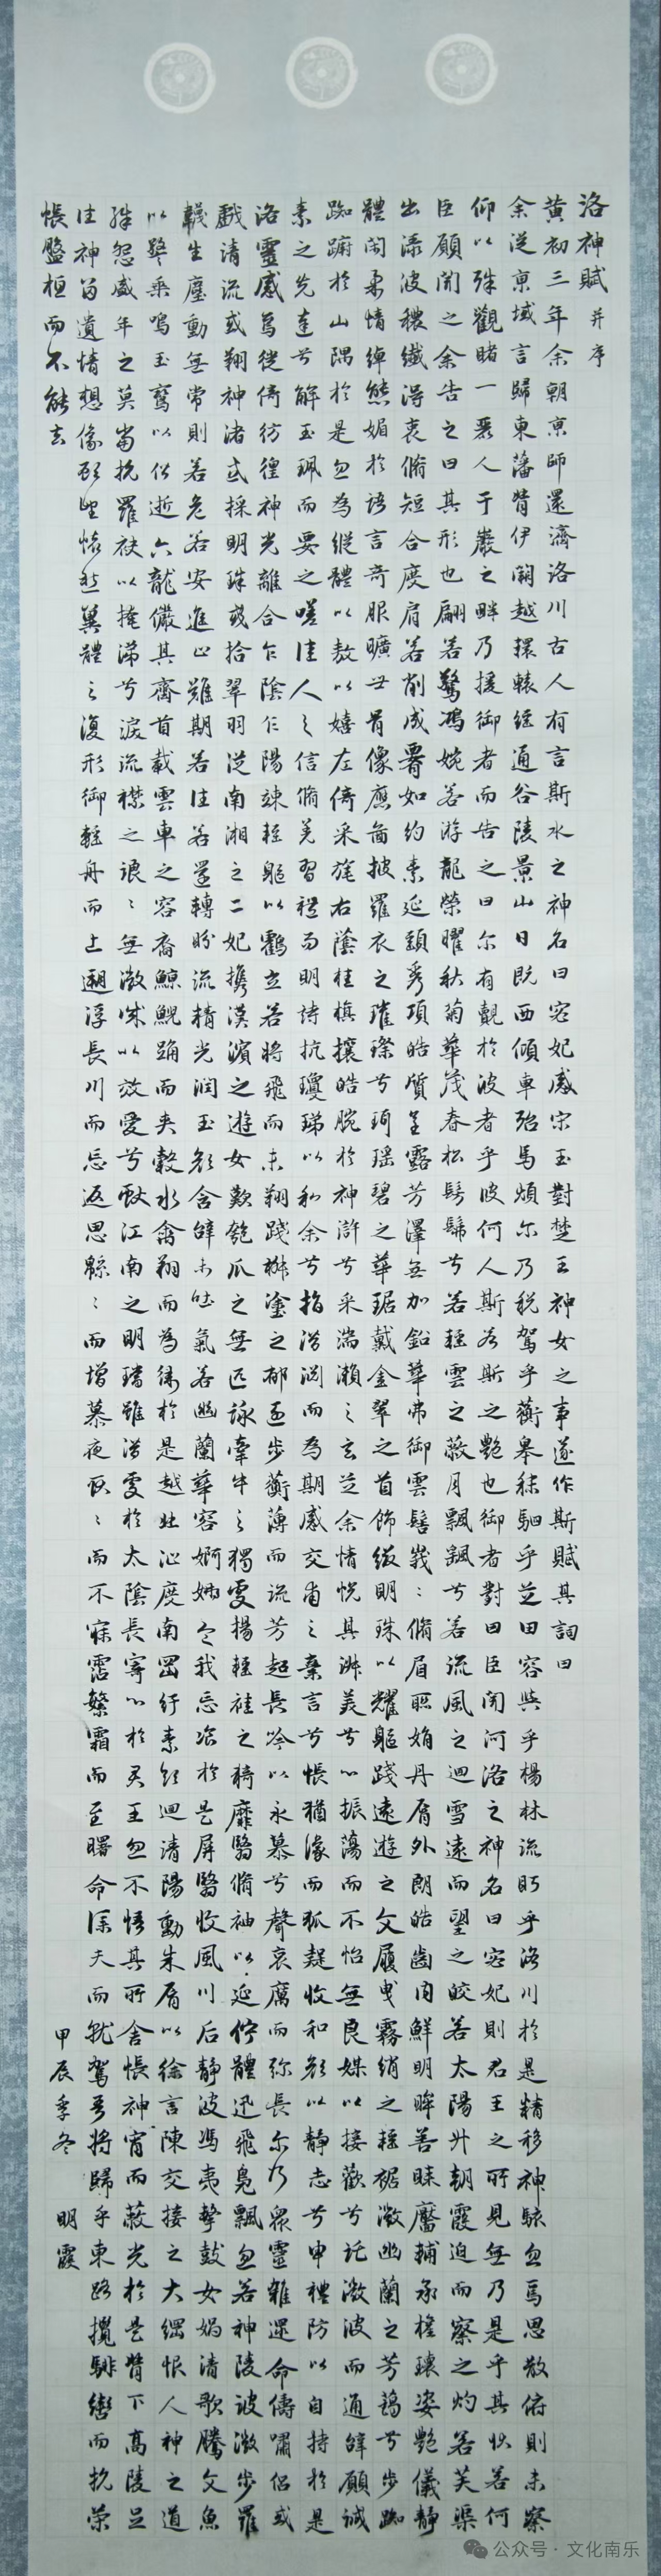 洛神賦 并序
黄初三年余朝京師還濟洛川古人有言斯水之神名曰宓妃感宋玉對楚王神女之事遂作斯賦其詞曰
余從京域言歸東藩背伊闕越轘轅經通谷陵景山日既西傾車殆馬煩尔乃税駕乎蘅皋秣駟乎芝田容與乎楊林流眄乎洛川於是精移神駭忽焉思散俯則未察
仰以殊觀睹一麗人于巖之畔乃援御者而告之曰尔有覿於彼者乎彼何人斯若斯之艷也御者對曰臣聞河洛之神名曰宓妃則君王之所見無乃是乎其状若何
臣願聞之余告之曰其形也翩若驚鴻婉若游龍榮曜秋菊華茂春松髣髴兮若輕雲之蔽月飄飖兮若流風之迴雪遠而望之皎若太陽升朝霞迫而察之灼若芙渠
出渌波穠纖得衷脩短合度肩若削成署如約素延頸秀項皓質呈露芳澤無加鉛華弗御雲髻峩〻脩眉聯娟丹脣外朗皓齒内鮮明眸善睞靨輔承權瓌姿艷儀靜
體閑柔情綽態媚於語言奇服曠世骨像應圖披羅衣之璀璨兮珥瑶碧之華琚戴金翠之首飾綴明珠以耀軀踐遠遊之文履曳霧綃之輕裾微幽蘭之芳藹兮步踟
踟蹰於山隅於是忽焉縱體以敖以嬉左倚采旄右蔭桂旗攘皓腕於神滸兮采湍瀨之玄芝余情悦其淑美兮心振蕩而不怡無良媒以接歡兮託微波而通辭願誠
素之先達兮解玉珮而要之嗟佳人之信脩羌習禮而明詩抗瓊珶以和余兮指潛淵而為期感交甫之棄言兮悵猶豫而狐疑收和顔以靜志兮申禮防以自持於是
洛靈感焉徙倚彷徨神光離合乍陰乍陽竦輕軀以鶴立若將飛而未翔踐椒塗之郁烈步蘅薄而流芳超長吟以永慕兮聲哀厲而彌長尔乃衆靈雜還命儔嘯侣或
戲清流或翔神渚或採明珠或拾翠羽從南湘之二妃攜漢濱之遊女歎匏瓜之無匹詠牽牛之獨處揚輕袿之猗靡翳脩袖以延佇體迅飛鳧飄忽若神陵波微步羅
韈生塵動無常則若危若安進止難期若往若還轉盼流精光潤玉顔含辭未吐氣若幽蘭華容婀娜令我忘飡於是屏翳收風川后靜波馮夷擊鼓女媧清歌騰文魚
以警乘鳴玉鸞以偕逝六龍儼其齊首載雲車之容裔鯨鯢踊而夾轂水禽翔而為衛於是越北沚度南岡紆素領迴清陽動朱脣以徐言陳交接之大綱恨人神之道
殊怨盛年之莫當抗羅袂以掩涕兮淚流襟之浪〻無微情以效愛兮獻江南之明璫雖潛處於太陰長寄心於君王忽不悟其所舍悵神宵而蔽光於是背下高陵足
往神留遺情想像顧望懷愁冀體之復形御輕舟而上遡浮長川而忘返思緜〻而增慕夜耿〻而不寐霑繁霜而至曙命僕夫而就駕吾將歸乎東路攬騑轡而抗策
悵盤桓而不能去
甲辰季冬 明霞
公众号·文化南乐